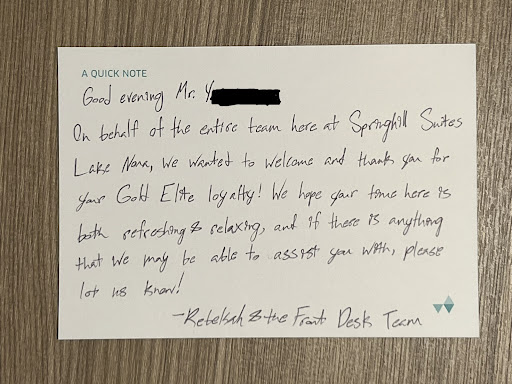 A QUICK NOTE
Good evening Mr. Y
On behalf of the entire team here at Springhill Suites
Lake Nona, we wanted to welcome and thank you for
your Gold Elite loyalty! We hope your time here is
both refreshing & relaxing, and if there is anything
that we may be able to assist you with, please
let us know!
-Rebekah & the Front Desk Team